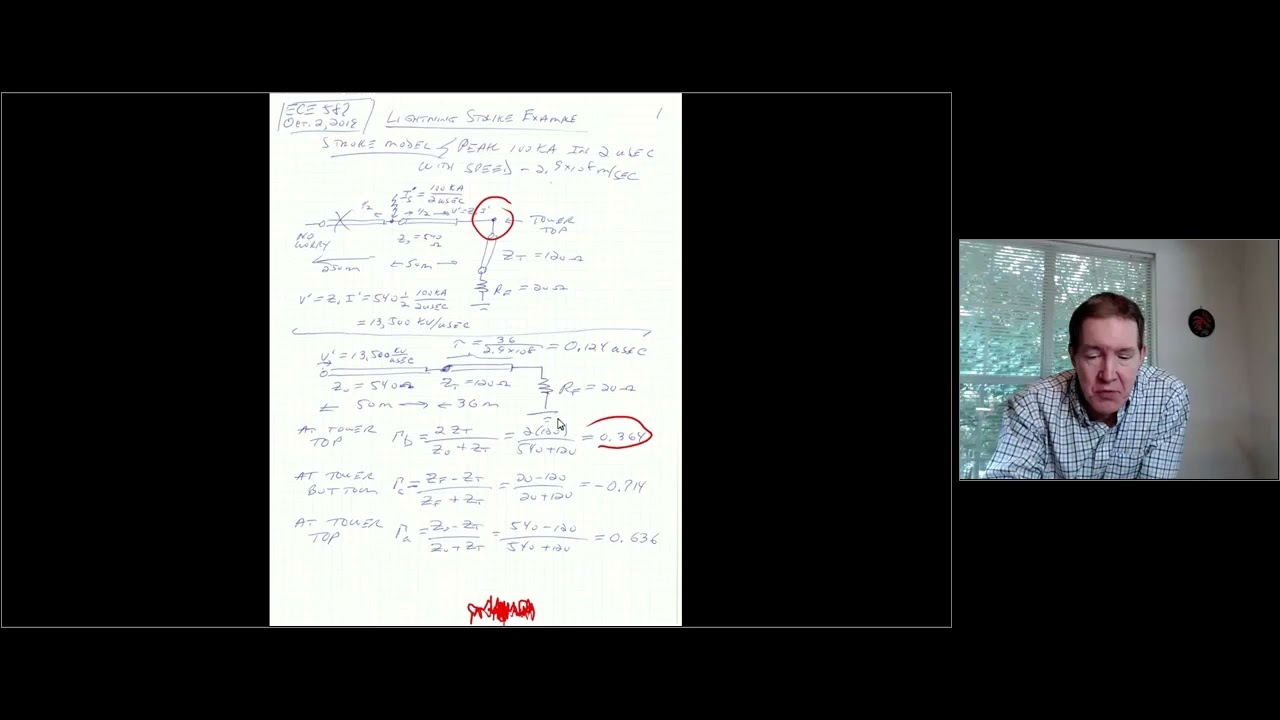 ECE 582
Oct. 2, 2018
LIGHTNING STRIKE EXAMPLE
1
STROKE MODEL PEAK 100 KA IN 2 uSEC
WITH SPEED - 2.9x10^8 m/SEC
I's = 100 KA / 2 uSEC
1/2 1/2 V' = Z, I'
TOWER TOP
NO WORRY
Z, = 540 Ω
ZT = 120 Ω
250m 50m
RF = 20 Ω
V' = Z, I' = 540 1/2 100KA / 2uSEC
= 13,500 KV/uSEC
V' = 13,500 KV/uSEC
τ = 36 / 2.9x10^8 = 0.124 uSEC
Z0 = 540 Ω ZT = 120 Ω RF = 20 Ω
50m 36m
AT TOWER TOP Γb = 2 ZT / Z0 + ZT = 2(120) / 540 + 120 = 0.364
AT TOWER BUTTOM Γc = ZF - ZT / ZF + ZT = 20 - 120 / 20 + 120 = -0.714
AT TOWER TOP Γa = Z0 - ZT / Z0 + ZT = 540 - 120 / 540 + 120 = 0.636